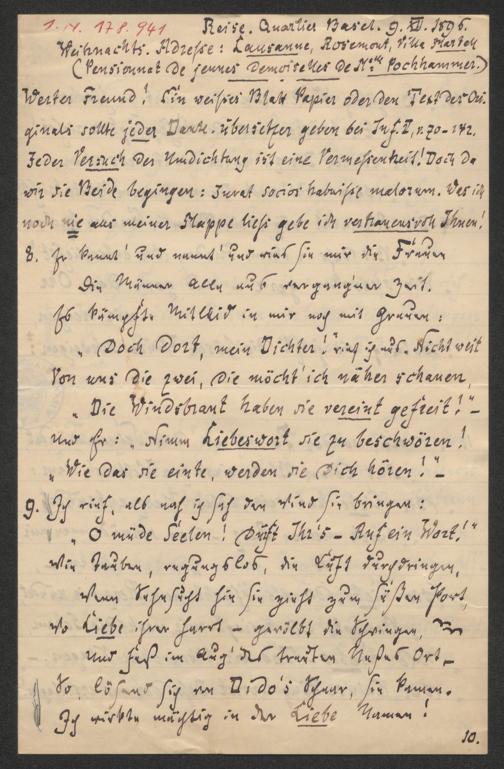 I. N. 178.941
Reise. Quartier Basel. 9. XII. 1896.
Weihnachts. Adresse: Lausanne, Rosemont, Villa
(Pensionnat de jeunes Demoiselles de Mselle Pochhammer.)
Werter Freund! Ein weißes Blatt Papier oder den Text des Ori-
ginals sollte jeder Dante-Übersetzer geben bei Inf. V, v. 70-142.
Jeder Versuch der Umdichtung ist eine Vermessenheit! Doch da
wir sie Beide begingen: Juvat socios habuisse malorum. Was ich
noch nie aus meiner Mappe ließ gebe ich vertrauensvoll Ihnen!
8. Er kannt' und nannt' und wies sie mir die Frauen
Die Männer alle aus vergang'ner Zeit.
Es kämpfte Mitleid in mir noch mit Grauen:
"Doch dort, mein Dichter!" rief ich aus. "Nicht weit
Von uns die zwei, die möcht' ich näher schauen,
"Die Windsbraut haben sie vereint gefreit!" –
Und Er: "Nimm Liebeswort sie zu beschwören!
"Wie das sie einte, werden sie Dich hören!" –
9. Ich rief, als nah ich sah den Wind sie bringen:
"O müde Seelen! Dürft Ihr's – Auf ein Wort!"
Wie Tauben, regungslos, die Luft durchdringen,
Wenn Sehnsucht hin sie zieht zum süßen Port,
Wo Liebe ihrer harrt – gewölbt die Schwingen,
Und fest im Aug' des trauten Nestes Ort –
So, lösend sich von Dido's Schaar, sie kamen.
Ich wirkte mächtig in der Liebe Namen!
10.